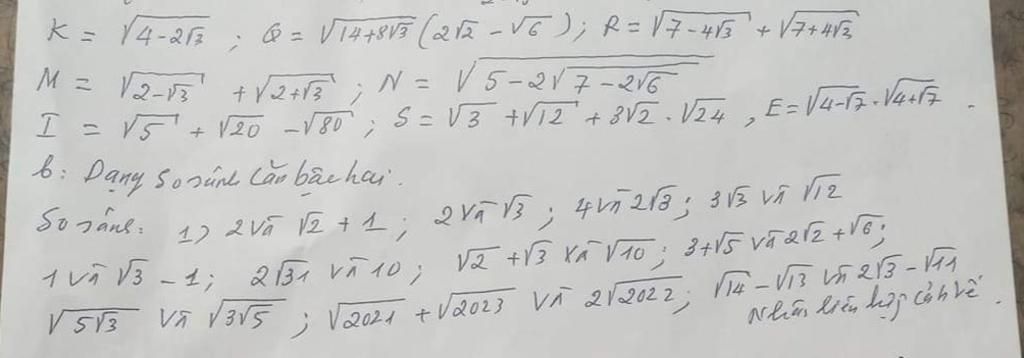 K = √(4-2√3) ; Q = √(14+8√3) (2√2 - √6) ; R = √(7-4√3) + √(7+4√3)
M = √(2-√3) + √(2+√3) ; N = √(5-2√(7-2√6))
I = √5 + √20 - √80 ; S = √3 + √12 + 3√2 . √24 , E = √(4-√7) . √(4+√7) .
b: Dạng so sánh căn bậc hai.
So sánh: 1) 2 và √2 + 1 ; 2 và √3 ; 4 và 2√3 ; 3√3 và √12
1 và √3 - 1 ; 2√31 và 10 ; √2 + √3 và √10 ; 3+√5 và 2√2 + √6 ;
√(5√3) và √(3√5) ; √2021 + √2023 và 2√2022 ; √14 - √13 và 2√3 - √11
Nhân liên hợp cả 2 vế .